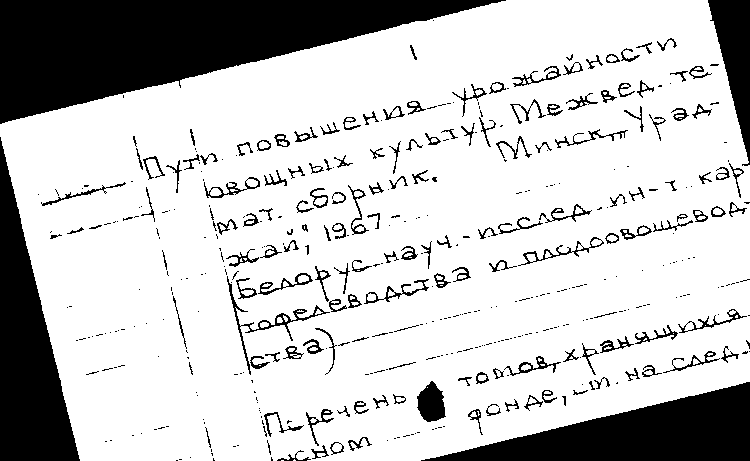 Пути повышения урожайности
овощных культур. Межвед. те-
мат. сборник. Минск, "Урад-
жай", 1967-
(Белорус. науч.-исслед. ин-т кар-
тофелеводства и плодоовощевод-
ства)
Перечень томов, хранящихся
фонде, см. на след.